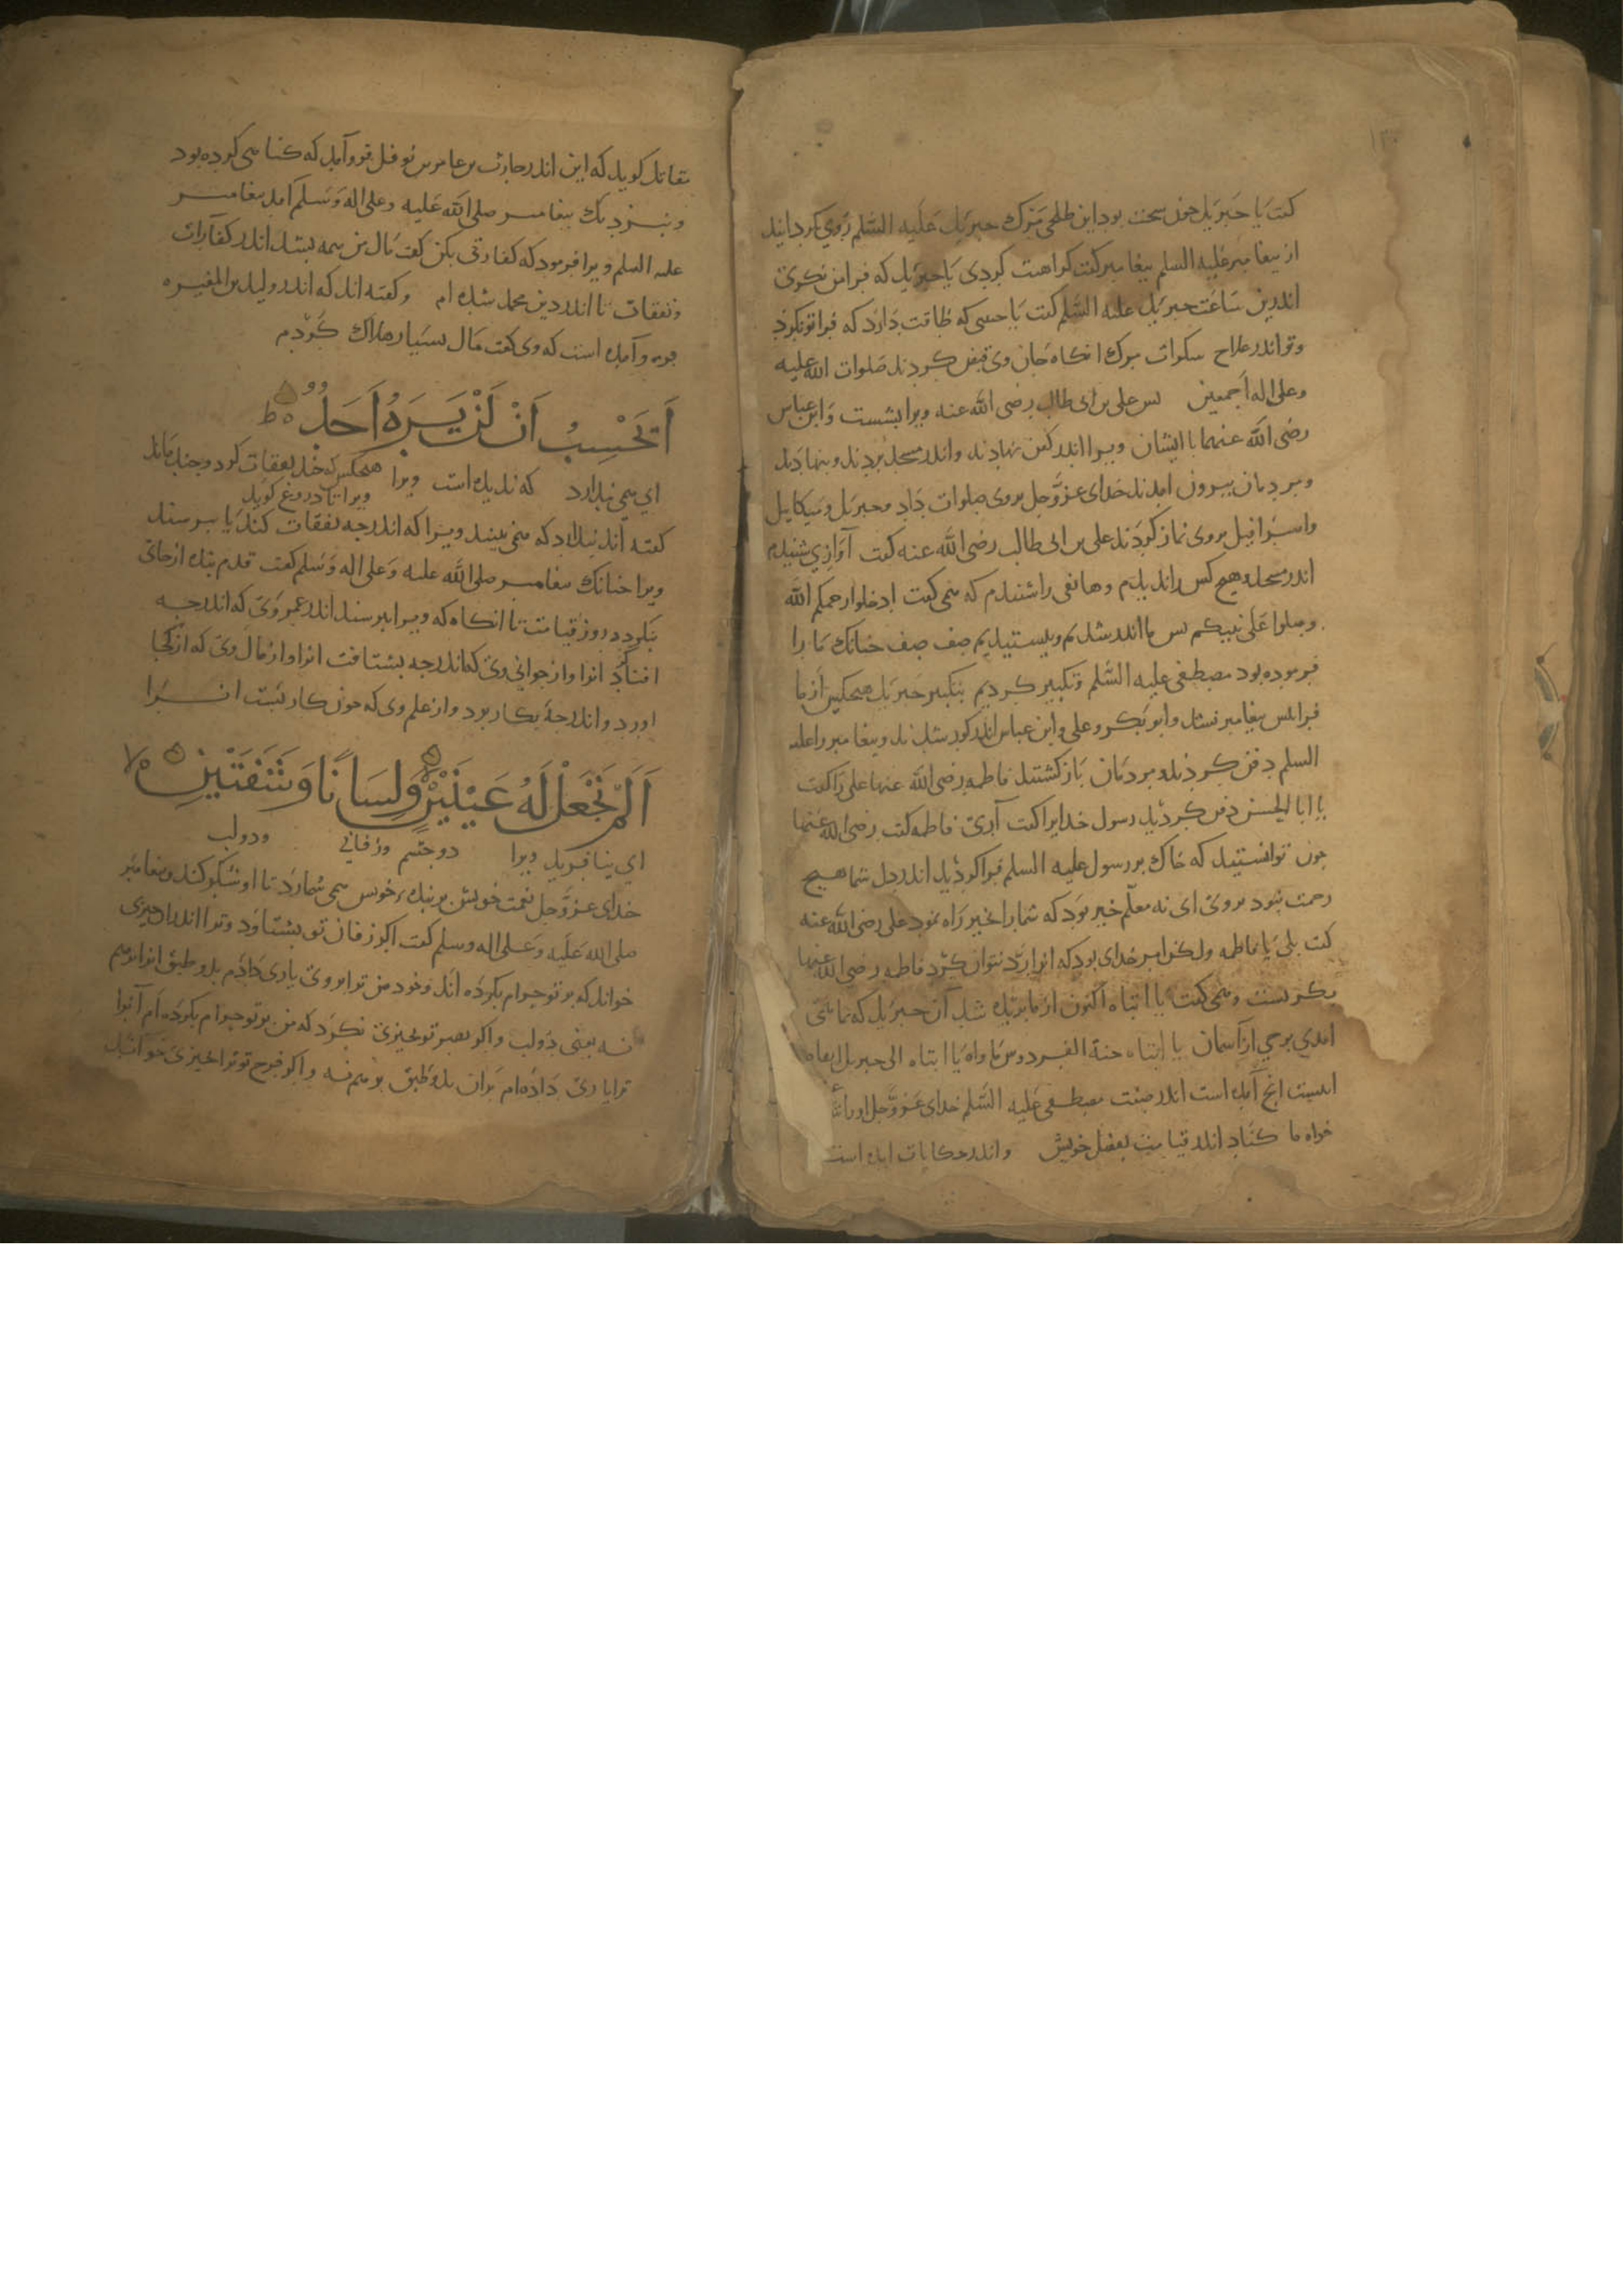 گفت یا جبریل چون سخت بود این طلخی مرگ جبریل علیه السلم روی بگردانید
از پیغامبر علیه السلم پیغامبر گفت کراهیت کردی یا جبریل که فرا من نگری
اندرین ساعت جبریل علیه السلم گفت یا حبیبی که طاقت دارد که فرا تو نگرد
و تو اندر علاج سکرات مرگ انگاه جان وی قبض کردند صلوات الله علیه
وعلی اله اجمعین پس علی بن ابی طالب رضی الله عنه ویرا بشست و ابن عباس
رضی الله عنهما با ایشان ویرا اندر کفن نهادند و اندر مسجد بردند و بنهادند
و مردمان بیرون امدند خدای عزوجل بروی صلوات داد و جبریل و میکایل
و اسرافیل بروی نماز کردند علی بن ابی طالب رضی الله عنه گفت آوازی شنیدم
اندر مسجد و هیچ کس را ندیدم و هاتفی را شنیدم که همی گفت ادخلوا رحمکم الله
وصلوا علی نبیکم پس ما اندر شدیم و بیستیدیم صف صف چنانک ما را
فرموده بود مصطفی علیه السلم و تکبیر کردیم بتکبیر جبریل هیچکس از ما
فرا پیش پیغامبر نشد و ابوبکر و علی و ابن عباس اندر گور شدند و پیغامبر را علیه
السلم دفن کردند و مردمان باز گشتند فاطمه رضی الله عنها علی را گفت
یا ابا الحسن دفن کردید رسول خدایرا گفت آری فاطمه گفت رضی الله عنها
چون توانستید که خاک بر رسول علیه السلم فرا کردید اندر دل شما هیچ
رحمت نبود بروی ای نه معلم خیر بود که شما را بخیر راه نمود علی رضی الله عنه
گفت بلی یا فاطمه ولکن امر خدای بود که انرا رد نتوان کرد فاطمه رضی الله عنها
بگریست و همی گفت یا ابتاه اکنون از ما بریده شد آن جبریل که بما همی
امدی بوحی از آسمان یا ابتاه جنة الفردوس ماواه یا ابتاه الی جبریل انعاه
اینست انچ آمده است اندر صفت مصطفی علیه السلم خدای عزوجل اورا
خواه ما کناد اندر قیامت بفضل خویش و اندر حکایات امده است
مقاتل گوید که این اندر حارث بن عامر بن نوفل فرو آمد که گناهی کرده بود
و بنزدیک پیغامبر صلی الله علیه وعلی اله وسلم امد پیغامبر
علیه السلم ویرا فرمود که کفارتی بکن گفت مال من همه بشد اندر کفارات
و نفقات تا اندر دین محمد شده ام و گفته اند که اندر ولید بن المغیره
فرو آمده است که وی گفت مال بسیار هلاک کردم
اَیَحْسِبُ اَنْ لَمْ یَرَهُ اَحَدٌ
ای همی پندارد که ندیده است ویرا هیچکس که خدای نفقات کرد و چند ماند
ویرا تا دروغ گوید
گفته اند پندارد که نمی بیند ویرا که اندر چه نفقات کند یا بپرسند
ویرا چنانک پیغامبر صلی الله علیه وعلی اله وسلم گفت قدم بنده از جای
بنگردد روز قیامت تا انگاه که ویرا بپرسند اندر عمر وی که اندر چه
افناکرد انرا و از جوانی وی که اندر چه بشتافت انرا و از مال وی که از کجا
اورد و اندر چه بکار برد و از علم وی که چون کار بست انرا
اَلَمْ نَجْعَلْ لَهُ عَیْنَیْنِ وَلِسَانًا وَشَفَتَیْنِ
ای نیافریدیم ویرا دو چشم و زفانی و دو لب
خدای عزوجل نعمت خویش بر بنده خویش همی شمارد تا او شکر کند و پیغامبر
صلی الله علیه وعلی اله وسلم گفت اگر زفان تو بشتاود و ترا اندر چیزی
خواند که بر تو حرام بکرده اند و خود من ترا بروی یاری داده ام بدو طبق انرا بر هم
نه یعنی دو لب و اگر بصر تو بچیزی نگرد که من بر تو حرام بکرده ام آنرا
ترا یاری داده ام بران بدو طبق بر هم نه و اگر فرج تو ترا بچیزی خواند